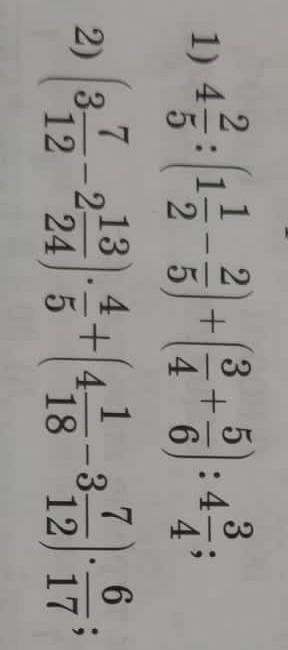 1) 4 2/5 : (1 1/2 − 2/5) + (3/4 + 5/6) : 4 3/4;
2) (3 7/12 − 2 13/24) · 4/5 + (4 1/18 − 3 7/12) · 6/17;